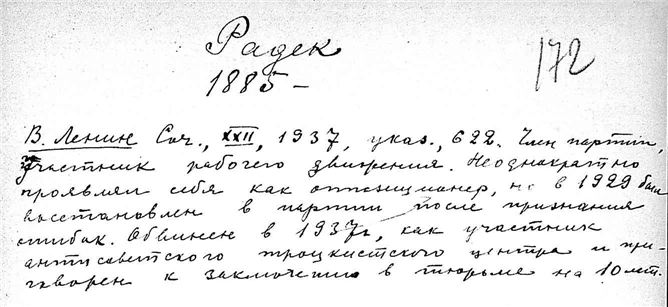 Радек
172
1885 –
В. Ленин Соч., XXII, 1937, указ., 622. Член партии,
участник рабочего движения. Неоднократно
проявлял себя как оппозиционер, но в 1929 был
восстановлен в партии после признания
ошибок. Обвинен в 1937г, как участник
антисоветского троцкистского центра и при-
говорен к заключению в тюрьме на 10 лет.